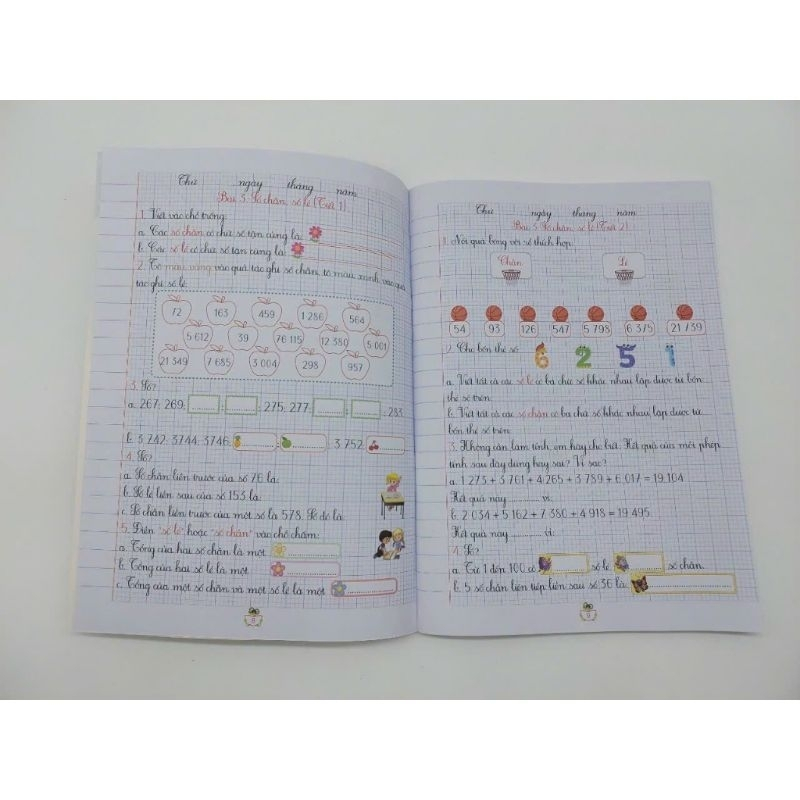 Thứ ngày tháng năm
Bài 3. Số chẵn, số lẻ (Tiết 1)
1. Viết vào chỗ trống:
a. Các số chẵn có chữ số tận cùng là:
b. Các số lẻ có chữ số tận cùng là:
2. Tô màu vàng vào quả táo ghi số chẵn, tô màu xanh vào quả
táo ghi số lẻ.
72 163 459 1 286 564
5 612 39 76 115 12 380 5 001
21 349 7 685 3 004 298 957
3. Số?
a. 267; 269; ............; ............; 275; 277; ............; ............; 283
b. 3 742; 3744; 3746; ............; ............; 3 752; ............
4. Số?
a. Số chẵn liền trước của số 76 là:
b. Số lẻ liền sau của số 153 là:
c. Số chẵn liền trước của một số là 578. Số đó là:
5. Điền "số lẻ" hoặc "số chẵn" vào chỗ chấm:
a. Tổng của hai số chẵn là một ............
b. Tổng của hai số lẻ là một ............
c. Tổng của một số chẵn và một số lẻ là một ............
8
Thứ ngày tháng năm
Bài 3. Số chẵn, số lẻ (Tiết 2)
1. Nối quả bóng với số thích hợp.
Chẵn Lẻ
54 93 126 547 5 798 6 375 21 739
2. Cho bốn thẻ số: 6 2 5 1
a. Viết tất cả các số lẻ có ba chữ số khác nhau lập được từ bốn
thẻ số trên.
b. Viết tất cả các số chẵn có ba chữ số khác nhau lập được từ
bốn thẻ số trên.
3. Không cần làm tính, em hãy cho biết. Kết quả của mỗi phép
tính sau đây đúng hay sai? Vì sao?
a. 1 273 + 3 761 + 4 265 + 3 789 + 6 017 = 19 104
Kết quả này ............ vì:
b. 2 034 + 5 162 + 7 380 + 4 918 = 19 495
Kết quả này ............ vì:
4. Số?
a. Từ 1 đến 100 có ............ số lẻ, ............ số chẵn.
b. 5 số chẵn liên tiếp liền sau số 36 là ............
9